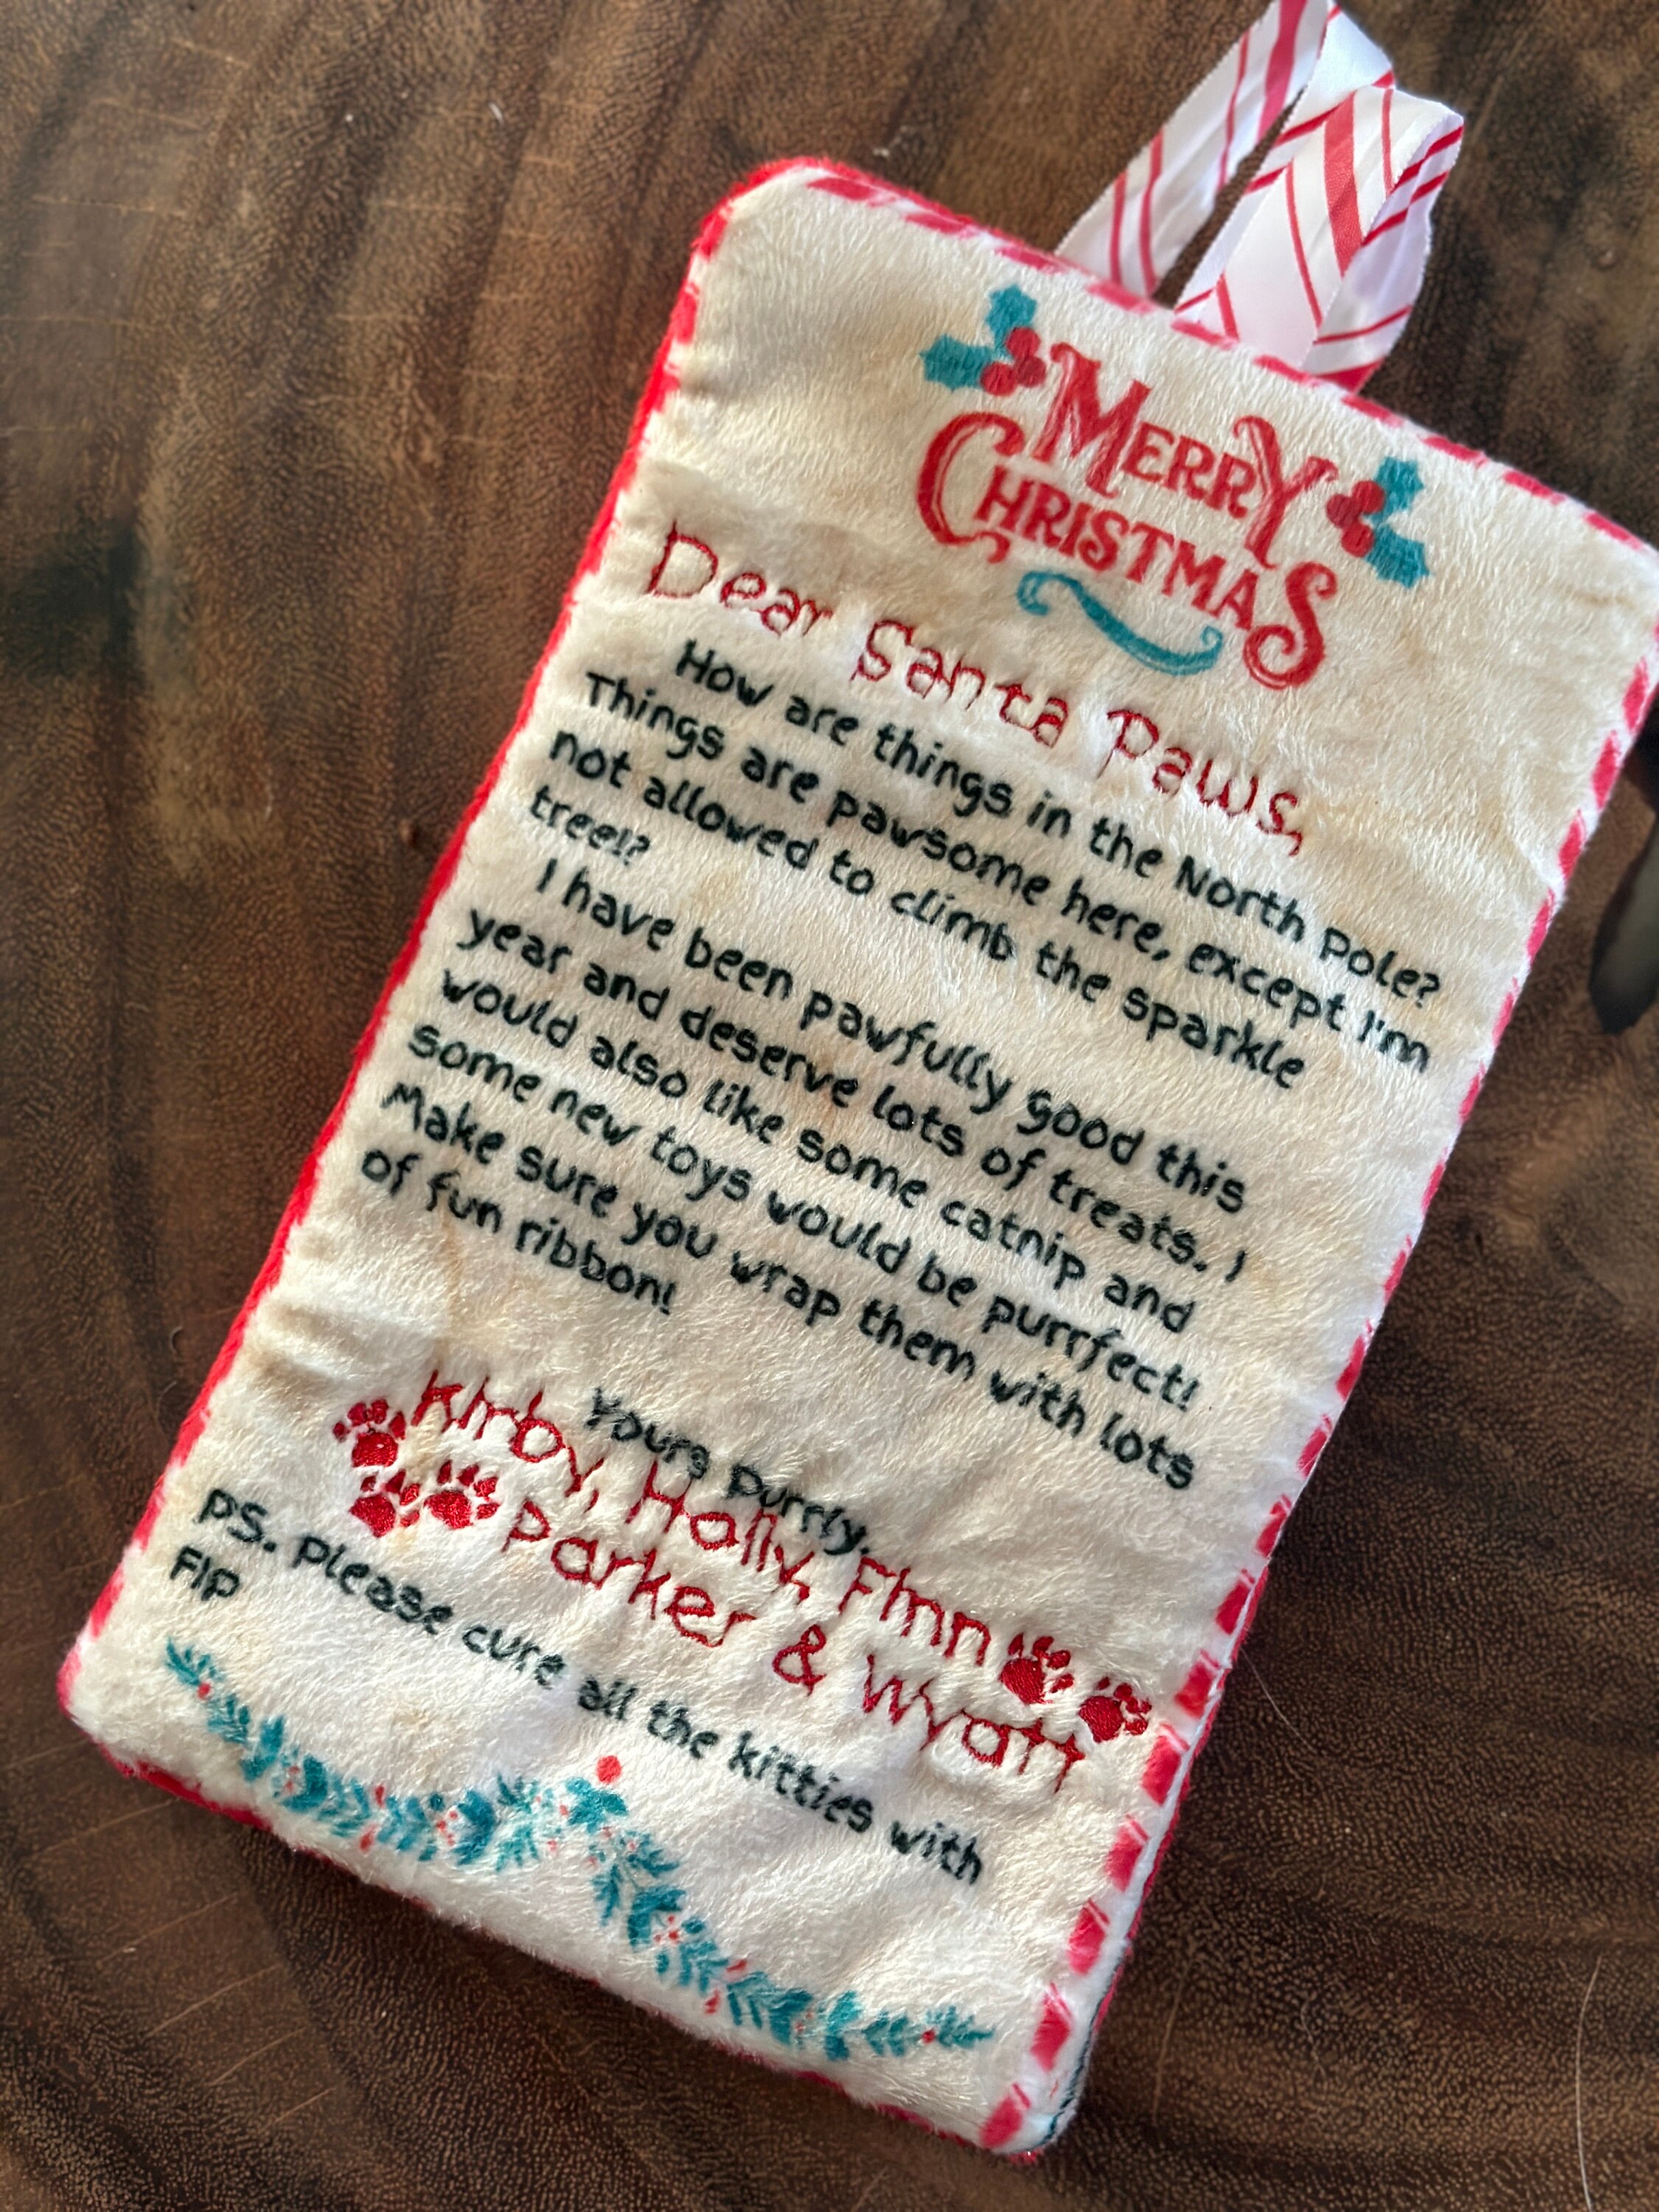 MERRY
CHRISTMAS
Dear Santa Paws,
How are things in the North Pole?
Things are pawsome here, except I'm
not allowed to climb the sparkle
tree!?
I have been pawfully good this
year and deserve lots of treats. I
would also like some catnip and
some new toys would be purrfect!
Make sure you wrap them with lots
of fun ribbon!
Yours Purrly,
Kirby, Holly, Finn
Parker & Wyatt
PS. Please cure all the kitties with
FIP